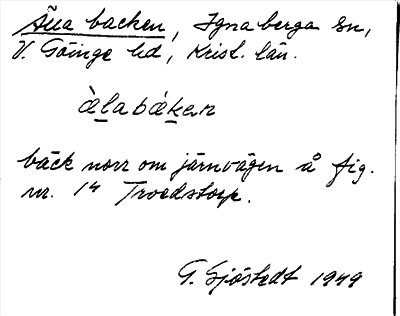 Äua backen, Ignaberga sn,
V. Göinge hd, Krist. län.
àlabákan
bäck norr om järnvägen å fig.
nr. 14 Troedstorp.
G. Sjöstedt 1949